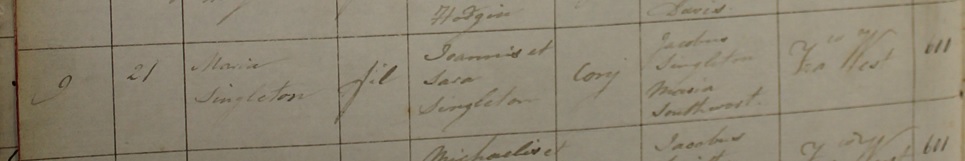 Hodgin
Davis.
9 21 Maria Singleton fil Joannis et Sara Singleton Conj Jacobus Singleton Maria Southwest. West 611
Michaelis et
Jacobus
611